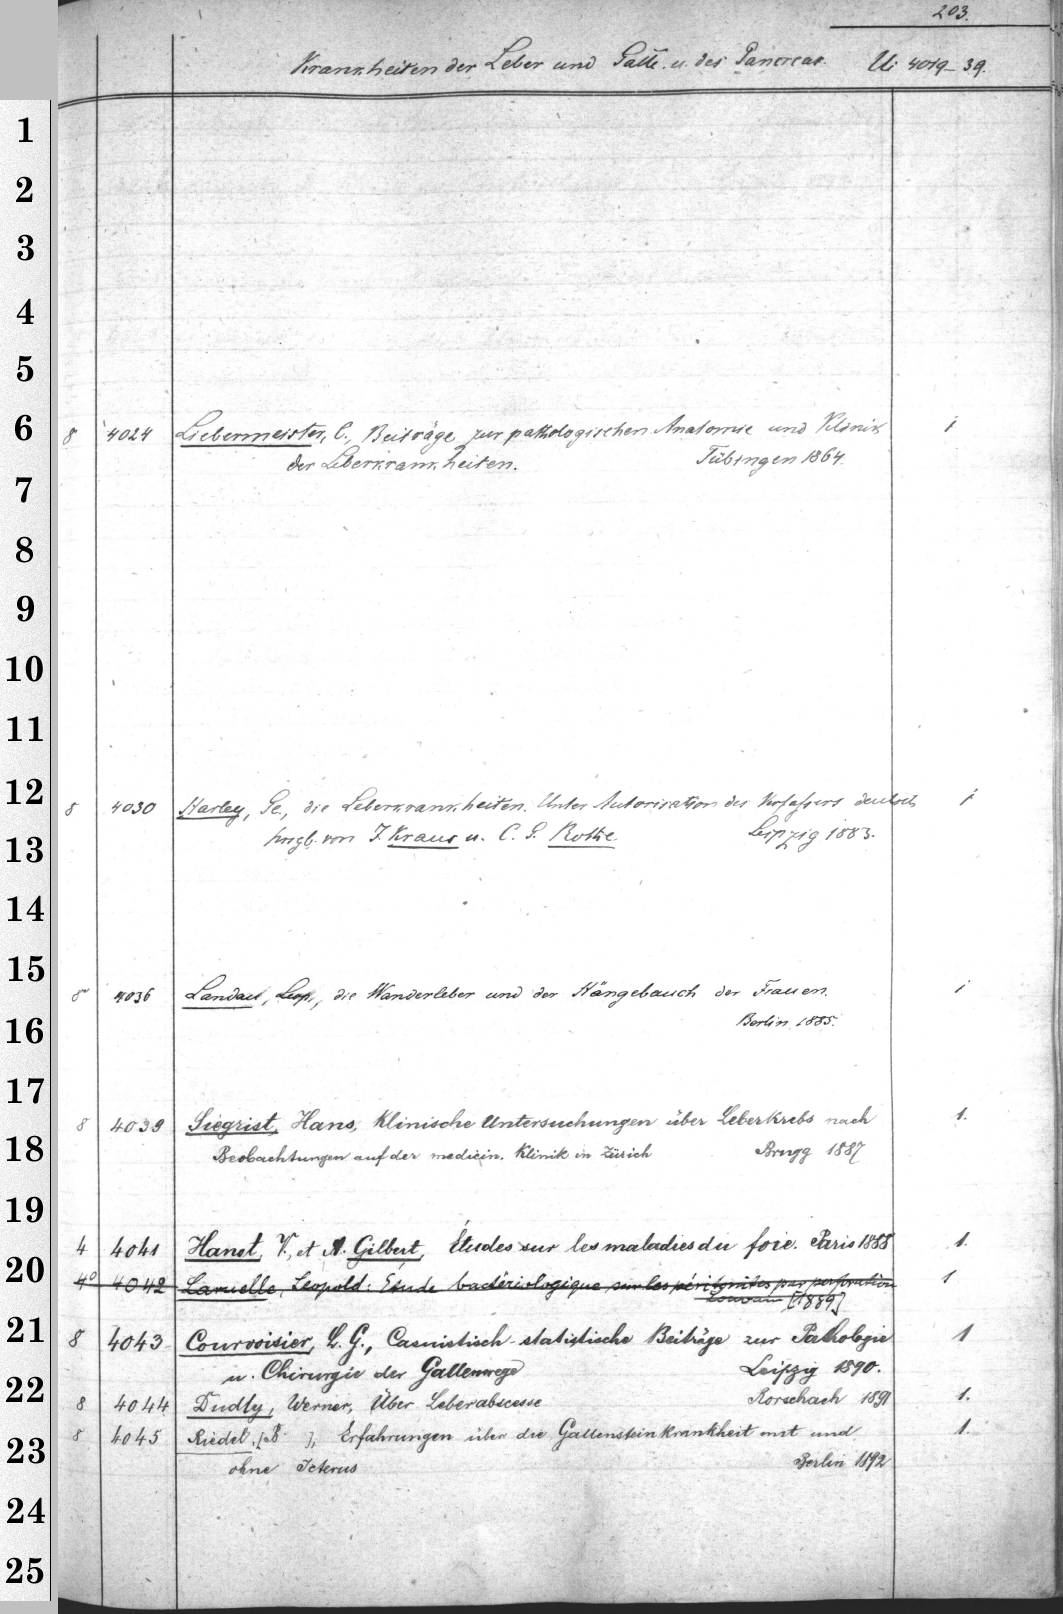 203.
Krankheiten der Leber und Galle u. des Pancreas. Ui 4019-39.
1
2
3
4
5
6
8 4024 Liebermeister, C., Beiträge zur pathologischen Anatomie und Klinik 1
der Leberkrankheiten. Tübingen 1864.
7
8
9
10
11
12
8 4030 Harley, Ge., die Leberkrankheiten. Unter Autorisation des Verfassers deutsch 1
hrsgb. von J. Kraus u. C. G. Rothe Leipzig 1883.
13
14
15
8 4036 Landau, Leop., die Wanderleber und der Hängebauch der Frauen. 1
Berlin 1885.
16
17
8 4039 Siegrist, Hans, Klinische Untersuchungen über Leberkrebs nach 1.
Beobachtungen auf der medicin. Klinik in Zürich Brugg 1887
18
19
4 4041 Hanot, V., et A. Gilbert, Études sur les maladies du foie. Paris 1888 1.
20
4° 4042 Laruelle, Leopold: Etude bactériologique sur les péritonites par perforation 1
Louvain [1889]
21
8 4043 Courvoisier, L. G., Casuistisch-statistische Beiträge zur Pathologie 1
u. Chirurgie der Gallenwege Leipzig 1890.
22
8 4044 Dudly, Werner, Über Leberabscesse Rorschach 1891 1.
8 4045 Riedel, [B ], Erfahrungen über die Gallensteinkrankheit mit und 1.
23
ohne Icterus Berlin 1892
24
25